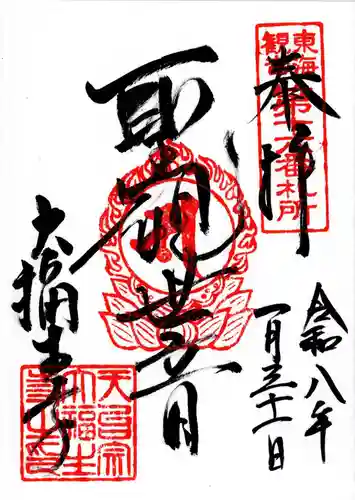 奉拝
東海
番札所
聖観世音
大福生寺
令和八年
一月三十一日
天台宗
大福生
寺之印